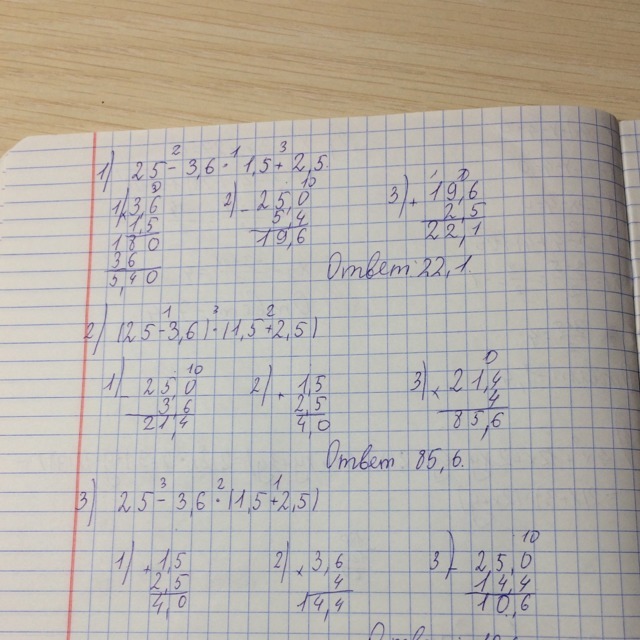 1) 25 - 3,6 · 1,5 + 2,5
2 1 3
1) × 3,6
1,5
180
36
5,40
2) - 25,0
5,4
19,6
10
3) + 19,6
2,5
22,1
1
Ответ 22,1.
2) (25 - 3,6) · (1,5 + 2,5)
1 3 2
1) - 25,0
3,6
21,4
10
2) + 1,5
2,5
4,0
3) × 21,4
4
85,6
Ответ 85,6.
3) 25 - 3,6 · (1,5 + 2,5)
3 2 1
1) + 1,5
2,5
4,0
2) × 3,6
4
14,4
3) - 25,0
14,4
10,6
10